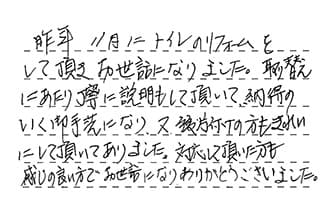 昨年 11月にトイレのリフォームを
して頂きお世話になりました。取替え
にあたり丁寧に説明もして頂いて、納得の
いく御手洗になり、又後片付けの方もきれい
にして頂いてありました。対応して頂いた方も
感じの良い方でお世話になりありがとうございました。